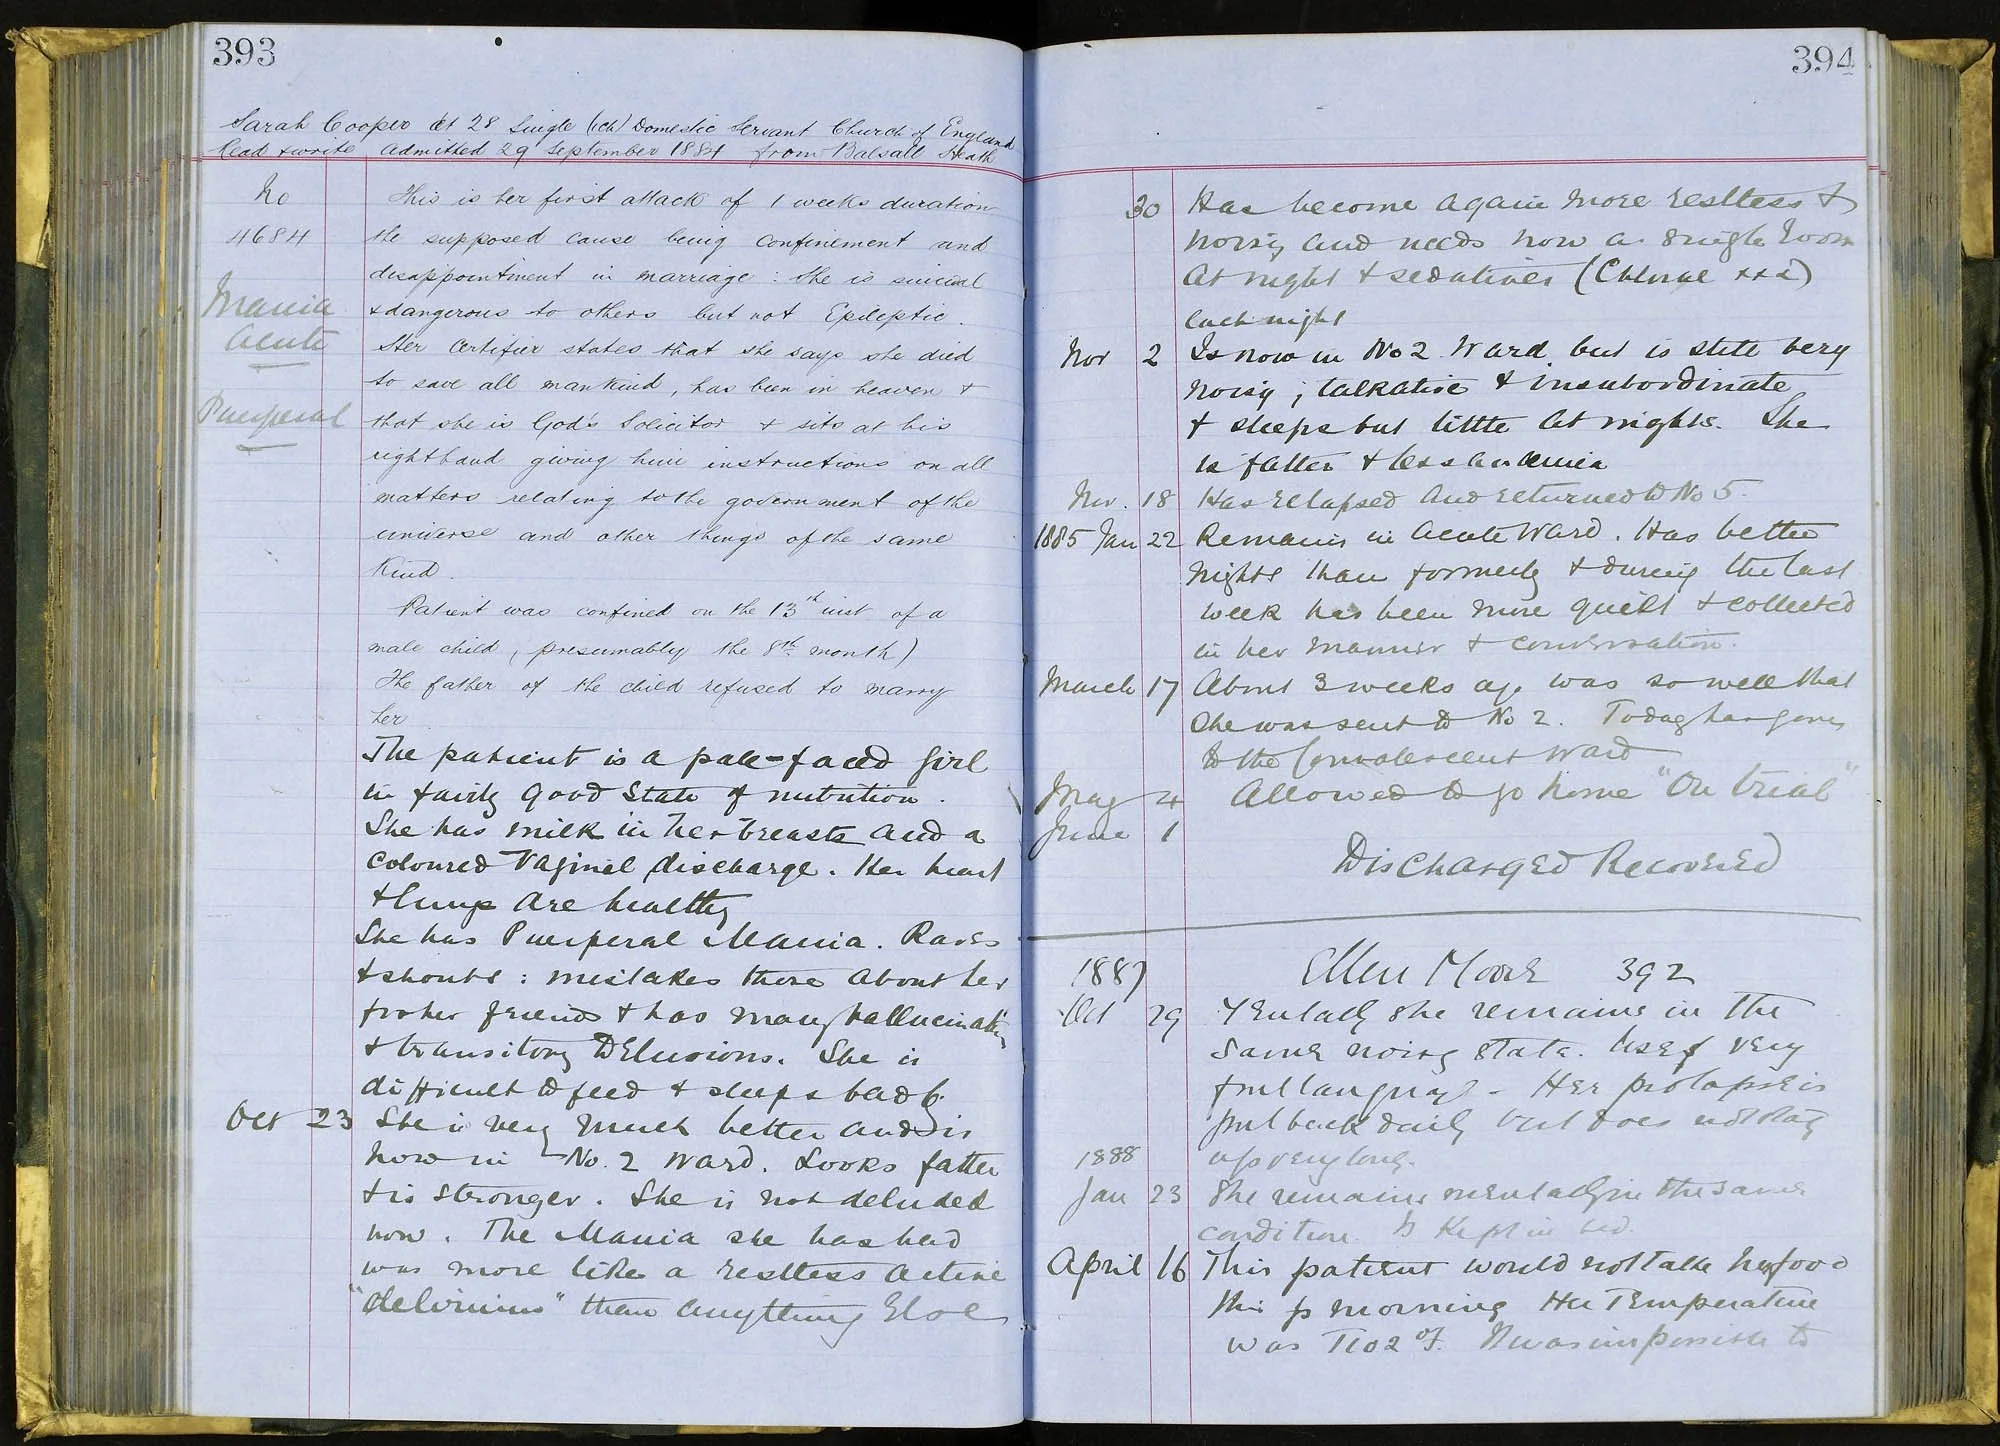 393
Sarah Cooper æt 28 Single (1ch) Domestic Servant Church of England
Read & write admitted 29 September 1884 from Balsall Heath
No
4684
Mania
Acute
Puerperal
This is her first attack of 1 weeks duration
the supposed cause being confinement and
disappointment in marriage : she is suicidal
& dangerous to others but not Epileptic.
Her Certifier states that she says she died
to save all mankind, has been in heaven &
that she is God's Solicitor & sits at his
righthand giving him instructions on all
matters relating to the government of the
universe and other things of the same
kind.
Patient was confined on the 13th inst of a
male child, presumably the 8th month)
The father of the child refused to marry
her
The patient is a pale-faced girl
in fairly good state of nutrition.
She has milk in her breasts and a
coloured vaginal discharge. Her heart
& lungs are healthy
She has Puerperal Mania. Raves
& shouts : mistakes those about her
for her friends & has many hallucinations
& transitory Delusions. She is
difficult to feed & sleeps badly.
Oct 23 She is very much better and is
now in No. 2 Ward. Looks fatter
& is stronger. She is not deluded
now. The Mania she has had
was more like a restless active
"delirium" than anything Else
394
30 Has become again more restless &
noisy and needs now a single room
at night & sedatives (Chloral xxx)
each night
Nov 2 Is now in No 2 Ward but is still very
noisy ; talkative & insubordinate
& sleeps but little at nights. She
is fatter & less anaemic
Nov. 18 Has relapsed and returned to No 5.
1885 Jan 22 Remains in Acute Ward. Has better
nights than formerly & during the last
week has been more quiet & collected
in her manner & conversation.
March 17 About 3 weeks ago was so well that
she was sent to No 2. Today has gone
to the Convalescent Ward
May 4 Allowed to go home "On trial"
June 1
Discharged Recovered
1887 Ellen Moore 392
Oct 29 Mentally she remains in the
same noisy state. Uses very
foul language - Her prolapse is
put back daily but does not stay
1888 up very long.
Jan 23 She remains mentally in the same
condition. Is kept in bed.
April 16 This patient would not take her food
this morning Her Temperature
was T102°F. It was impossible to